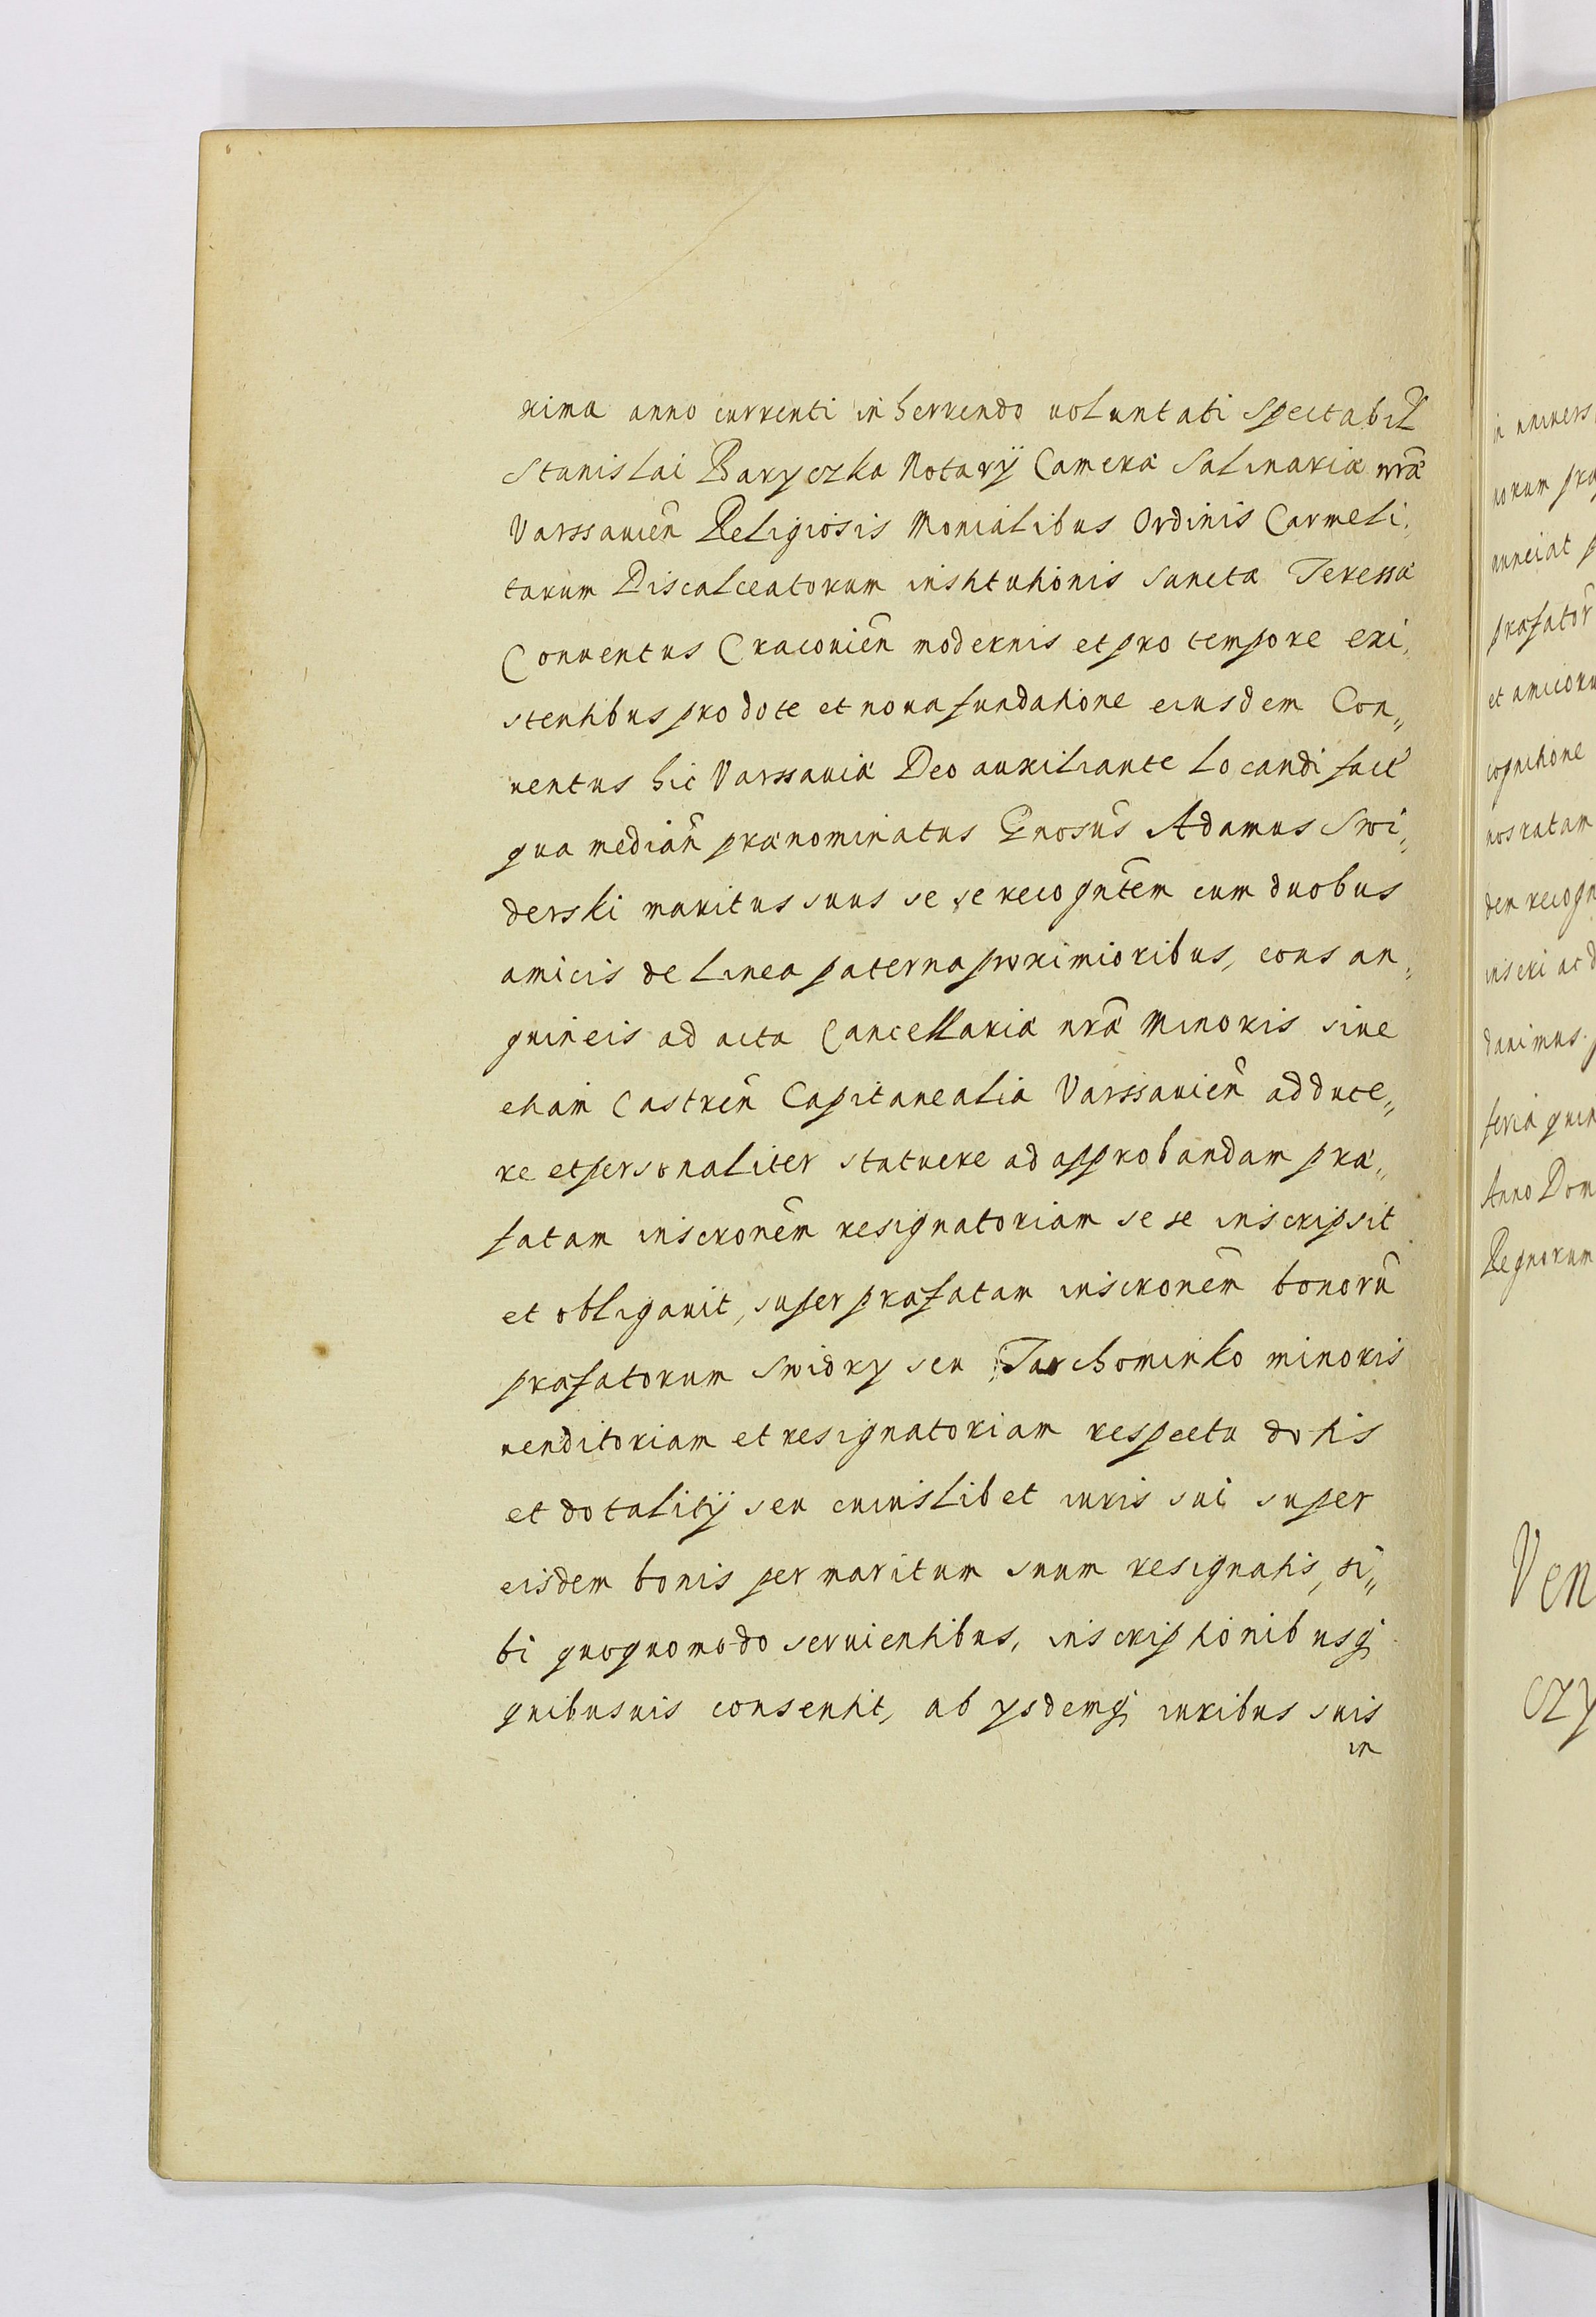 xima anno currenti inherrendo uoluntati spectabil
Stanislai Baryczka Notarÿ Cameræ Salinariæ nrã
Varssauień Religiosis Monialibus Ordinis Carmeli,
tarum Discalceatorum institutionis sanctæ Teressæ
Conuentus Cracouień modernis et pro tempore exi,
stentibus pro dote et noua fundatione eiusdem Con„
uentus hic Varssauiæ Deo auxiliante locandi fact
qua mediań prænominatus Gnosus Adamus Swi„
derski maritus suus se se recogntem cum duobus
amicis de linea paterna proximioribus, consan„
guineis ad acta Cancellariæ nrã Minoris siue
etiam Castreń Capitanealia Varssauień adduce„
re et personaliter statuere ad approbandam præ„
fatam inscronem resignatoriam se se inscripsit
et obligauit, super præfatam inscronem bonorũ
præfatorum Swidry seu Tarchominko minoris
uenditoriam et resignatoriam respectu dotis
et dotalitÿ seu cuiuslibet iuris sui super
eisdem bonis per maritum suum resignatis, si„
bi quoquomodo seruientibus, inscriptionibusq
quibusuis consentit, ab ysdemq iuribus suis
in
in uniuers
uorum præ
nunciat p
præfator
et amicoru
cognitione
nos ratam
dem recogn
inscri ac d
dauimus.
feria quin
Anno Dom
Regnorum
Ven
czy